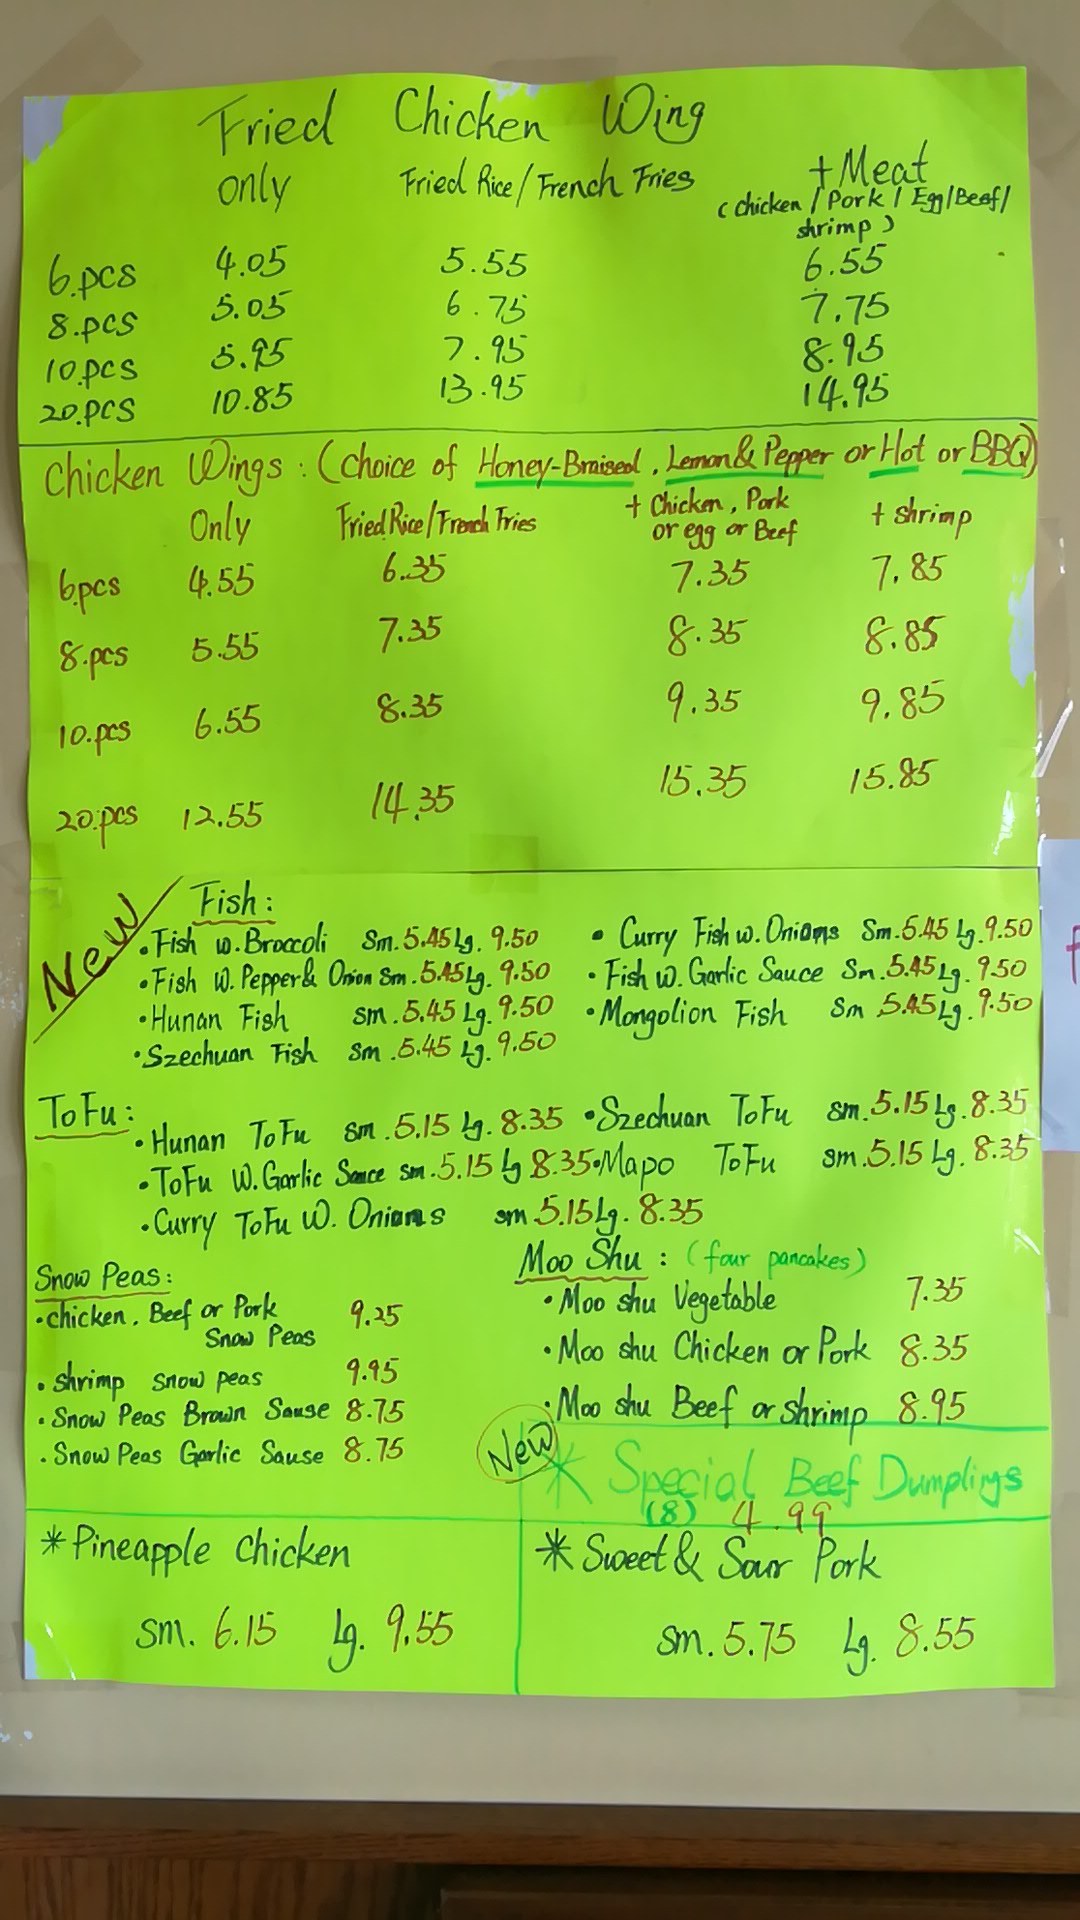 Fried Chicken Wing
only Fried Rice/French Fries + Meat
(chicken/Pork/Egg/Beef/
shrimp)
6.pcs 4.05 5.55 6.55
8.pcs 5.05 6.75 7.75
10.pcs 5.95 7.95 8.95
20.pcs 10.85 13.95 14.95
Chicken Wings: (choice of Honey-Braised, Lemon & Pepper or Hot or BBQ)
Only Fried Rice/French Fries + Chicken, Pork + shrimp
or egg or Beef
6pcs 4.55 6.35 7.35 7.85
8.pcs 5.55 7.35 8.35 8.85
10.pcs 6.55 8.35 9.35 9.85
20.pcs 12.55 14.35 15.35 15.85
New
Fish:
• Fish w. Broccoli Sm. 5.45 Lg. 9.50 • Curry Fish w. Onions Sm. 5.45 Lg. 9.50
• Fish W. Pepper & Onion Sm. 5.45 Lg. 9.50 • Fish w. Garlic Sauce Sm. 5.45 Lg. 9.50
• Hunan Fish sm. 5.45 Lg. 9.50 • Mongolion Fish Sm 5.45 Lg. 9.50
• Szechuan Fish Sm. 5.45 Lg. 9.50
ToFu:
• Hunan ToFu sm. 5.15 Lg. 8.35 • Szechuan ToFu sm. 5.15 Lg. 8.35
• ToFu W. Garlic Sauce sm. 5.15 Lg 8.35 • Mapo ToFu sm. 5.15 Lg. 8.35
• Curry ToFu W. Onions sm 5.15 Lg. 8.35
Snow Peas:
• chicken, Beef or Pork 9.25
Snow Peas
• shrimp snow peas 9.95
• Snow Peas Brown Sause 8.75
• Snow Peas Garlic Sause 8.75
Moo Shu: (four pancakes)
• Moo shu Vegetable 7.35
• Moo shu Chicken or Pork 8.35
• Moo shu Beef or shrimp 8.95
New
* Special Beef Dumplings
(8) 4.99
* Pineapple chicken
sm. 6.15 Lg. 9.55
* Sweet & Sour Pork
sm. 5.75 Lg. 8.55